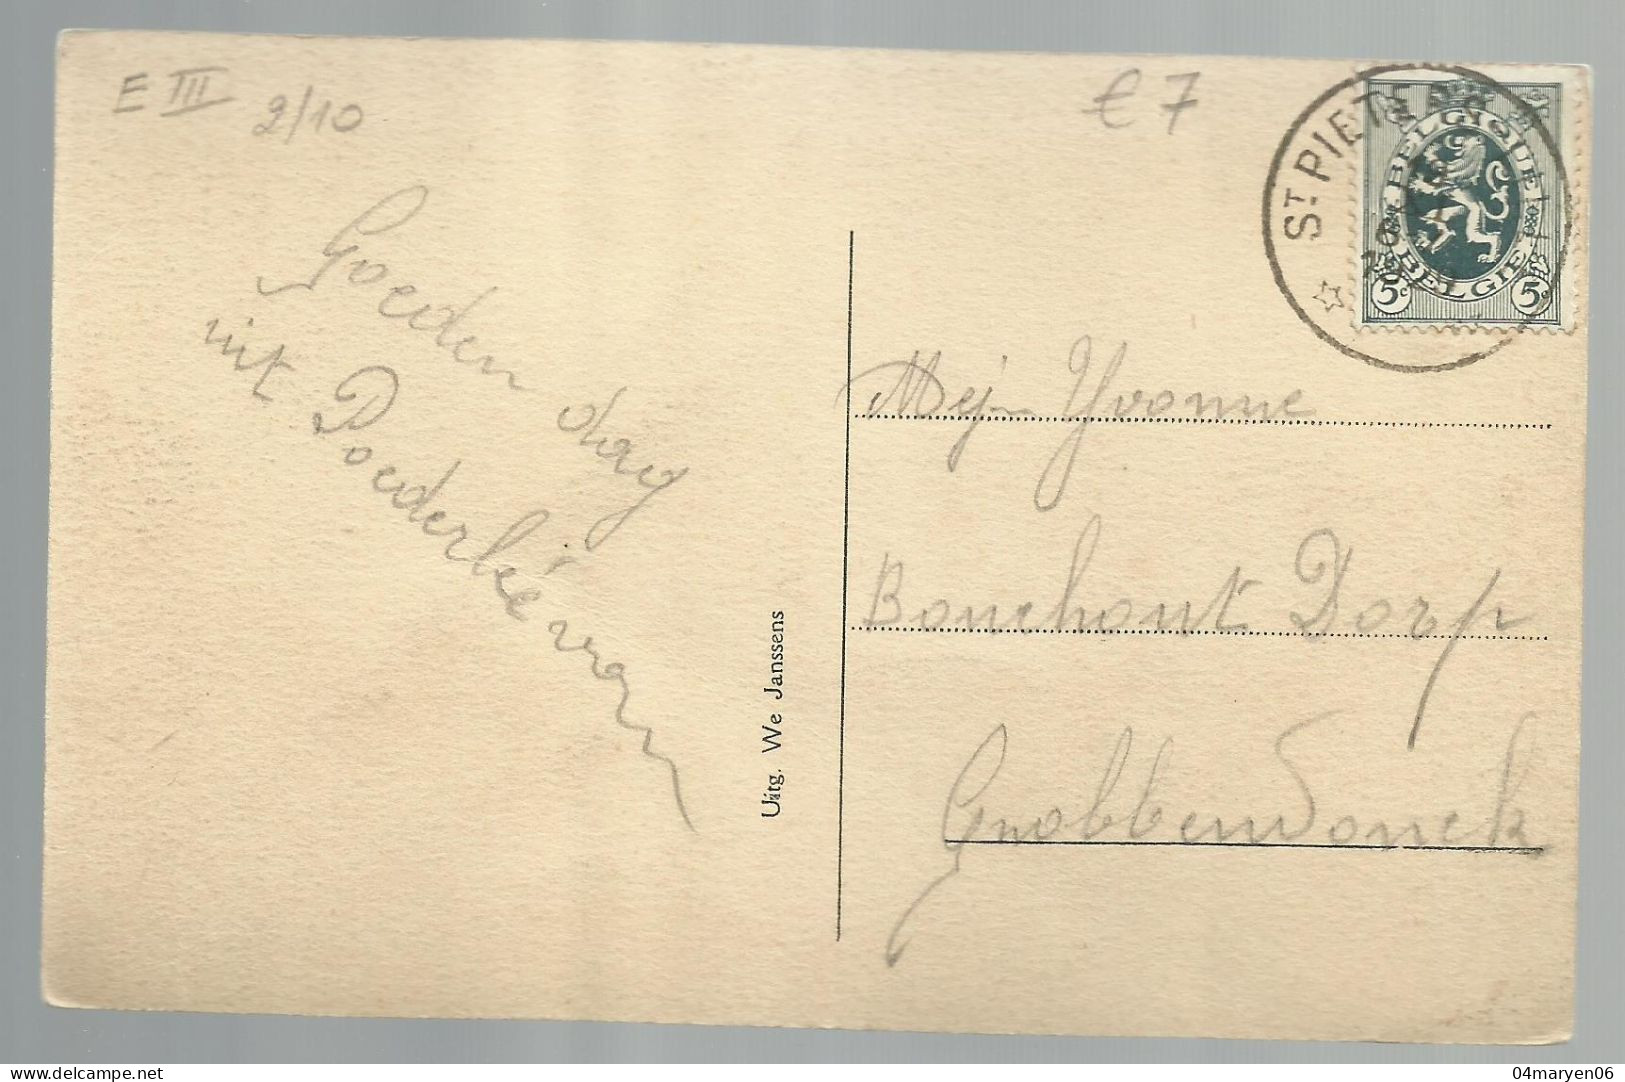 E III 2/10
€ 7
Goeden dag
uit Poederlée van
Uitg. We Janssens
ST PIETERS
BELGIQUE
BELGIE
5c 5c
Mejn Yvonne
Bouchout Dorp
Grobbendonck
04maryen06